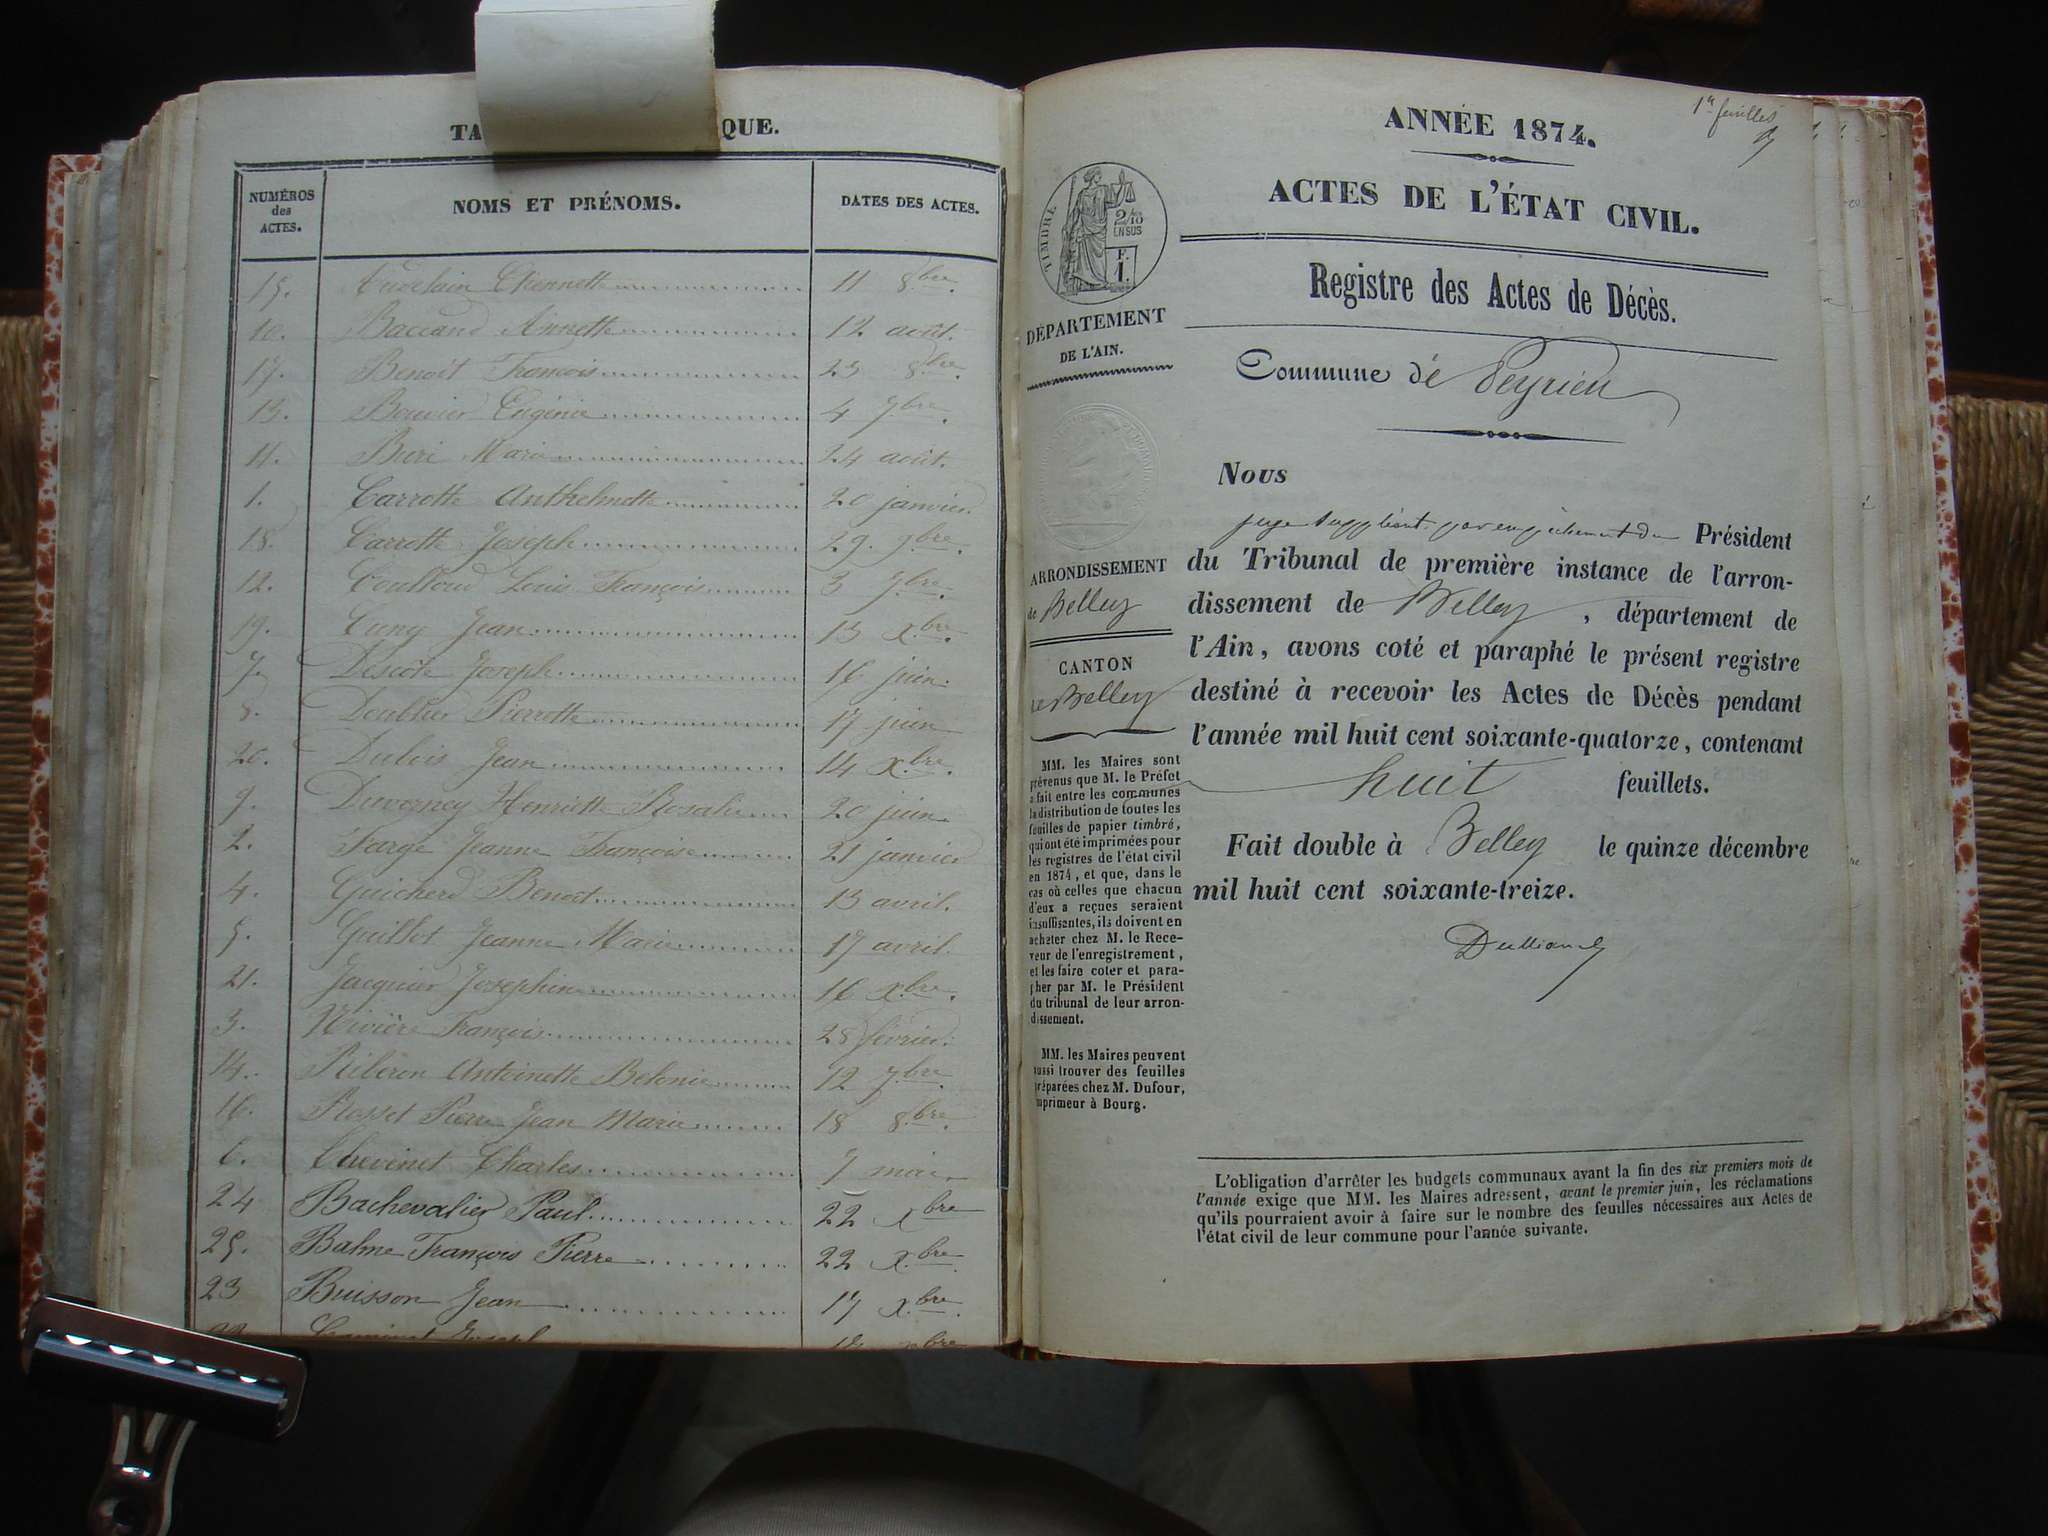 TA QUE.
NUMÉROS des ACTES. NOMS ET PRÉNOMS. DATES DES ACTES.
15. 11 8bre.
10. Baccand Annette 12 août.
17. Benoît François 23 8bre.
13. Bouvier Eugénie 4 7bre.
11. Buri Marie 24 août.
1. Carrotte Anthelmette 20 janvier.
18. Carrotte Joseph 29. 9bre.
12. Coulloud Louis François 3 7bre.
19. Cuny Jean 13 Xbre.
7. Descote Joseph 16 juin.
8. Doublier Pierrette 17 juin
20. Dubois Jean 14 Xbre.
9. Duverney Henriette Rosalie 20 juin.
2. Farge Jeanne Françoise 21 janvier
4. Guicherd Benoît 13 avril.
5. Guillot Jeanne Marie 17 avril.
21. Jacquier Josephine 16 Xbre.
3. Rivière François 28 février.
14. Antoinette 12 7bre.
16. Rosset Pierre Jean Marie 18 8bre.
6. Thevenet Charles 7 mai
24 Bachevalier Paul 22 Xbre
25. Balme François Pierre 22 Xbre.
23 Buisson Jean 17 Xbre.
1re feuillet
ANNÉE 1874.
ACTES DE L'ÉTAT CIVIL.
TIMBRE
2/10
EN SUS
F.
1.
Registre des Actes de Décès.
DÉPARTEMENT
DE L'AIN.
Commune de Peyrieu
Nous
juge suppléant par empêchement du Président
du Tribunal de première instance de l'arron-
dissement de Belley, département de
l'Ain, avons coté et paraphé le présent registre
destiné à recevoir les Actes de Décès pendant
l'année mil huit cent soixante-quatorze, contenant
huit feuillets.
Fait double à Belley le quinze décembre
mil huit cent soixante-treize.
ARRONDISSEMENT
de Belley
CANTON
de Belley
MM. les Maires sont
prévenus que M. le Préfet
a fait entre les communes
la distribution de toutes les
feuilles de papier timbré,
qui ont été imprimées pour
les registres de l'état civil
en 1874, et que, dans le
cas où celles que chacun
d'eux a reçues seraient
insuffisantes, ils doivent en
acheter chez M. le Rece-
veur de l'enregistrement,
et les faire coter et para-
pher par M. le Président
du tribunal de leur arron-
dissement.
MM. les Maires peuvent
aussi trouver des feuilles
préparées chez M. Dufour,
imprimeur à Bourg.
L'obligation d'arrêter les budgets communaux avant la fin des six premiers mois de
l'année exige que MM. les Maires adressent, avant le premier juin, les réclamations
qu'ils pourraient avoir à faire sur le nombre des feuilles nécessaires aux Actes de
l'état civil de leur commune pour l'année suivante.